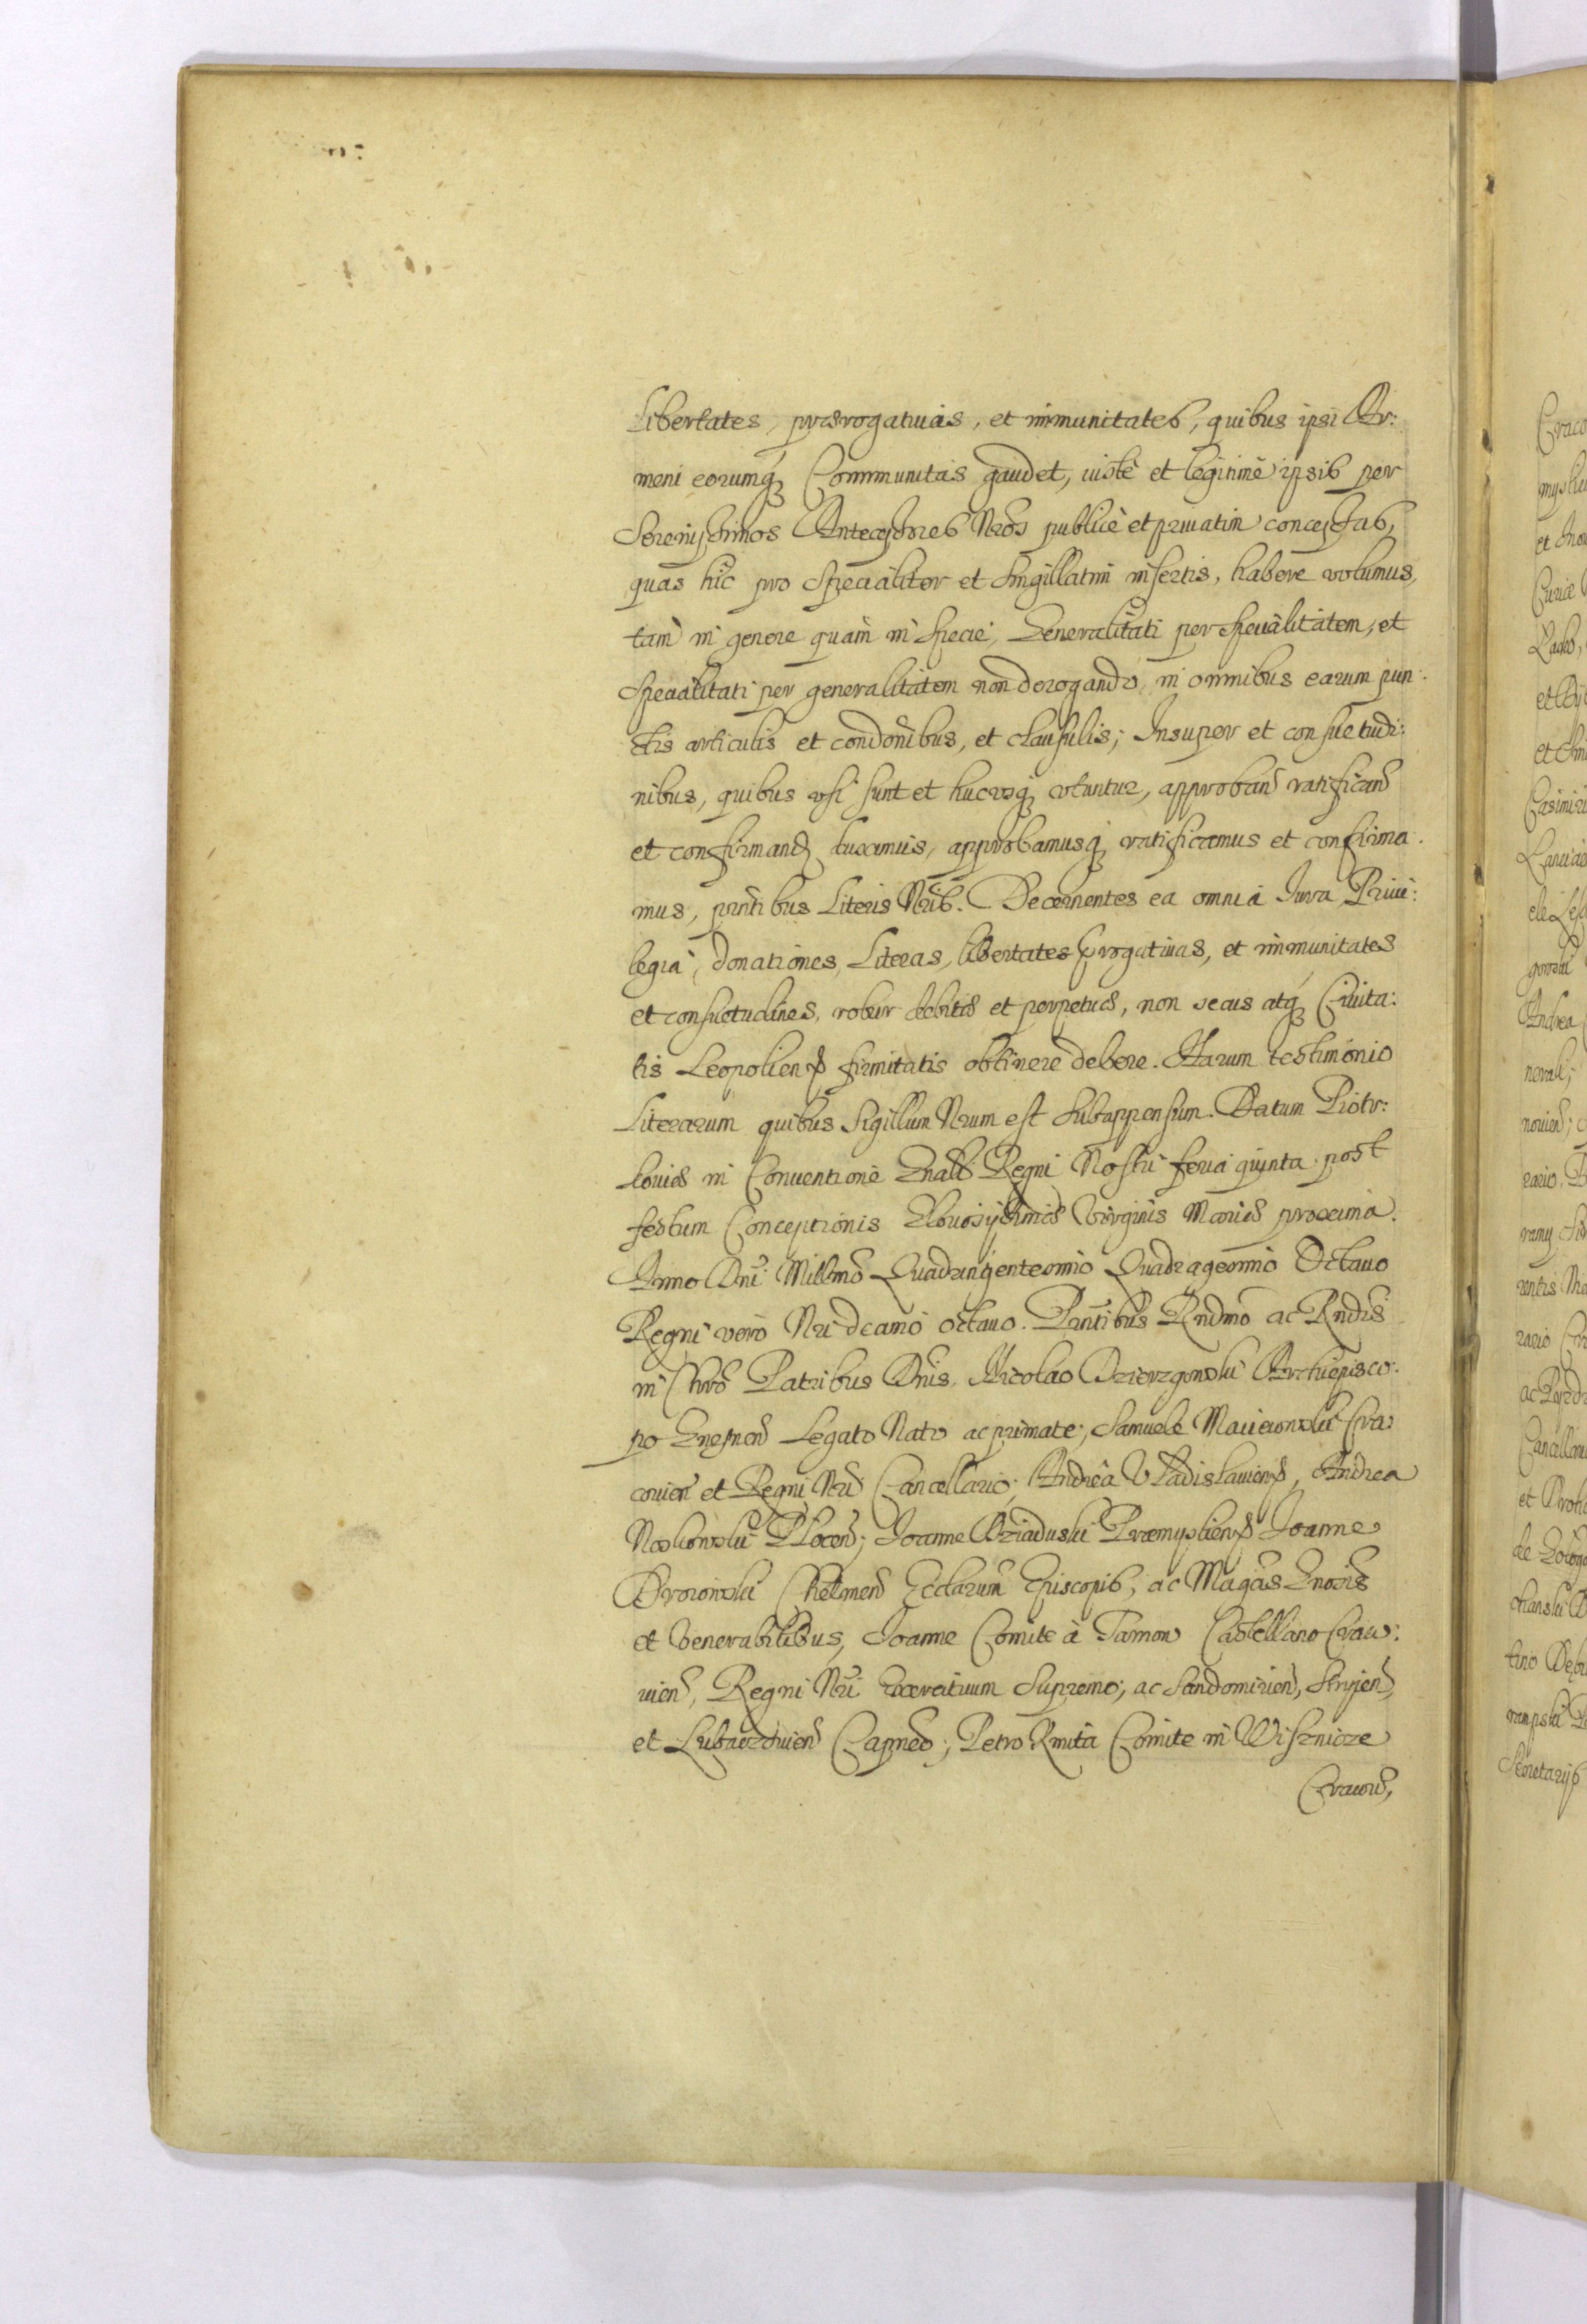 Libertates, prærogatiuas, et immunitates, quibus ipsi Ar:
meni eorumq́ Communitas gaudet, iustè et legitimè ipsis per
Serenissimos Antecessores Nr̃os publicè et priuatim concessas,
quas hic pro specialiter et singillatim insertis, habere volumus,
tam in genere quàm in specie, Generalitati per specialitatem, et
specialitati per generalitatem non derogando, in omnibus earum pun:
ctis articulis et condõnibus, et clausulis; Insuper et consuetudi:
nibus, quibus vsi sunt et hucvsq́ vtuntur, approband̃ ratificand̃
et confirmand̃ duximus, approbamusq́ ratificamus et confirma:
mus, pñtibus Literis Nr̃is. Decernentes ea omnia Iura Priui:
legia, donationes, Literas, libertates prrogatiuas, et immunitates
et consuetudines, robur debitæ et perpetuæ, non secus atq́ Ciuita:
tis Leopolien̄ firmitatis obtinere debere. Harum testimonio
Literarum quibus Sigillum Nr̃um est subappensum. Datum Piotr:
kouiæ in Conuentione Gnãli Regni Nostri feria quinta post
festum Conceptionis Gloriosissimæ Virginis Mariæ proxima.
Anno Dnĩ Millm̃o Quadringentesimo Quadragesimo Octauo
Regni verò Nr̃i decimo octauo. Pñtibus Rnd̃mo ac Rnd̃is
in Chrõ Patribus Dnĩs. Nicolao Dzierzgowski Archiepisco:
po Gnesnen̄ Legato Nato ac primate; Samuele Macieiowski Cra:
couien̄ et Regni Nr̃i Cancellario; Andrea Vladislauien̄, Andrea
Noskowski Plocen̄; Joanne Dziaduski Præmyslien̄ Joanne
Drohoiowski Chelmen̄ Eccl̃arum Episcopis, ac Magcĩs Gnosĩs
et Venerabilibus, Joanne Comite à Tarnow Castellano Craco:
uien̄, Regni Nr̃i Exercituum Supremo, ac Sandomirien̄, Stryien̄,
et Lubaczouien̄ Capneo; Petro Kmita Comite in Wisznicze
Cracouien̄,